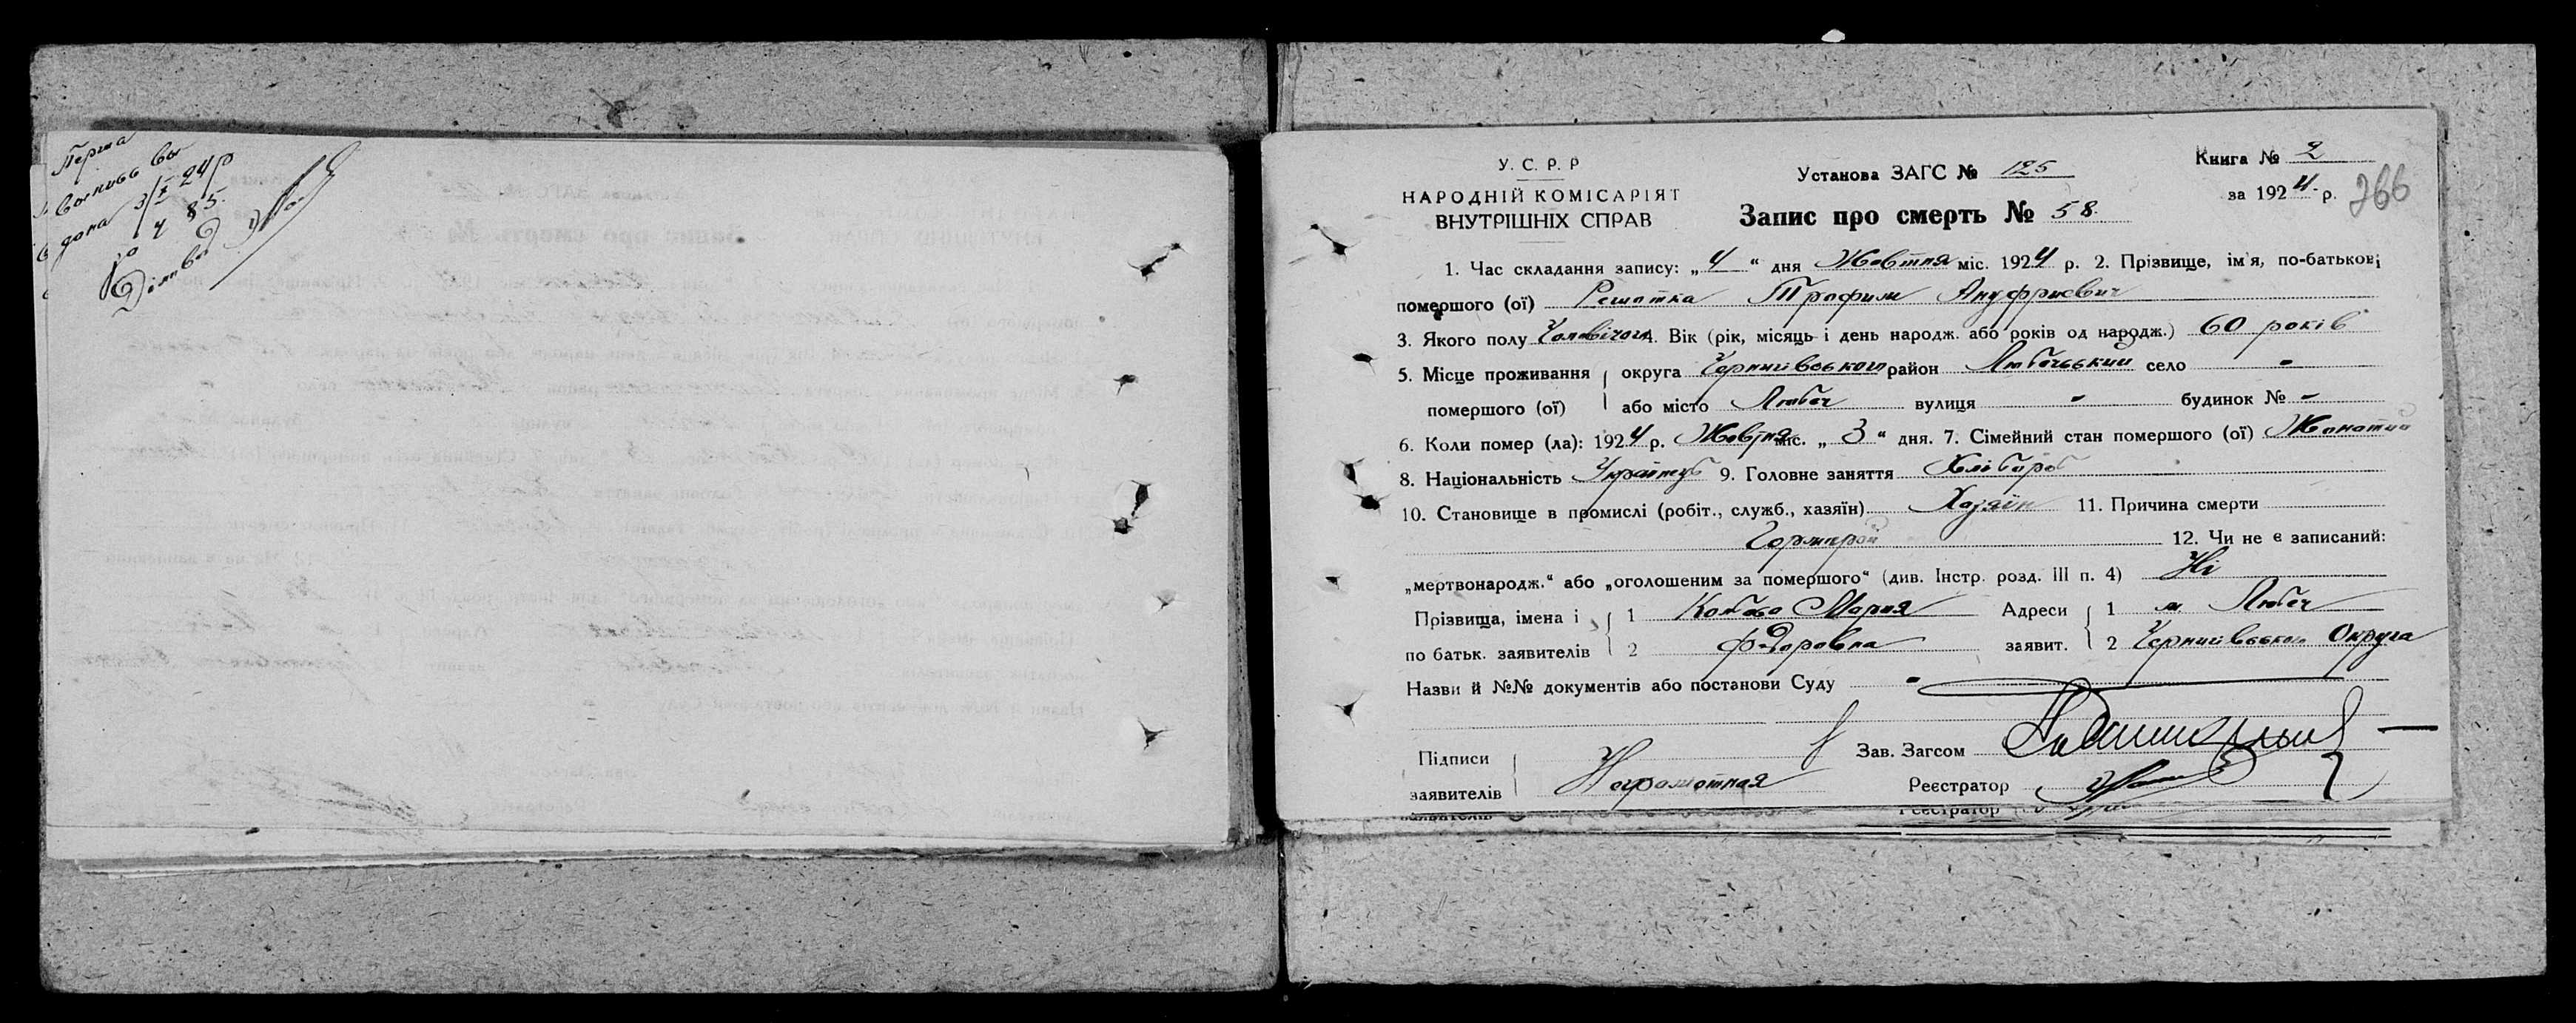 Перша
выпись вы
дана 3/X 24 р
за № 85.
У. С. Р. Р
НАРОДНІЙ КОМІСАРІЯТ
ВНУТРІШНІХ СПРАВ
Установа ЗАГС № 125
Запис про смерть № 58.
Книга № 2
за 1924 р.
266
1. Час складання запису: „ 4 “ дня Жовтня міс. 1924 р. 2. Прізвище, ім'я, по-батькові
помершого (ої) Решотка Трофим Ануфриевич
3. Якого полу Чоловічого 4. Вік (рік, місяць і день народж. або років од народж.) 60 років
5. Місце проживання округа Чернигівського район Любечський село -
помершого (ої) або місто Любеч вулиця - будинок № -
6. Коли помер (ла): 1924 р. Жовтня міс. „ 3 “ дня. 7. Сімейний стан помершого (ої) Жонатий
8. Національність Українець 9. Головне заняття Хлібороб
10. Становище в промислі (робіт., служб., хазяїн) Хазяїн 11. Причина смерти
12. Чи не є записаний:
„мертвонародж.“ або „оголошеним за помершого“ (див. Інстр. розд. III п. 4) Ні
Прізвища, імена і 1 Мария Адреси 1 м. Любеч
по батьк. заявителів 2 Федоровна заявит. 2 Чернигівського Округа
Назви й №№ документів або постанови Суду -
Підписи Зав. Загсом
заявителів Неграмотная Реєстратор
заявителів Реєстратор